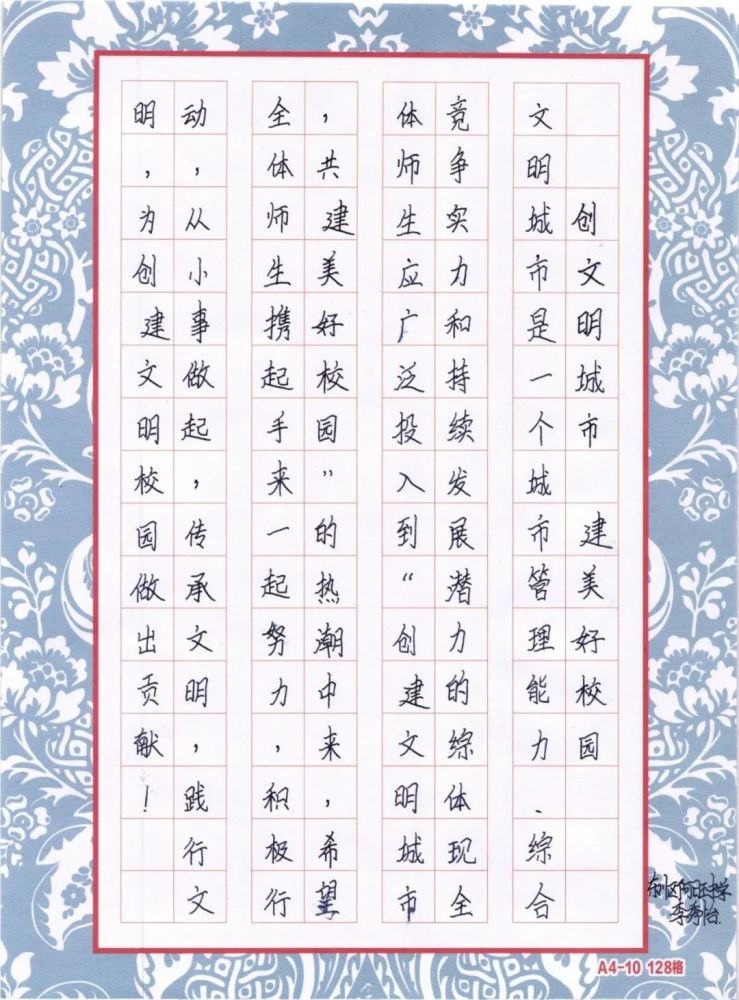 创文明城市 建美好校园
文明城市是一个城市管理能力、综合
竞争实力和持续发展潜力的综体现全
体师生应广泛投入到“创建文明城市
，共建美好校园”的热潮中来，希望
全体师生携起手来一起努力，积极行
动，从小事做起，传承文明，践行文
明，为创建文明校园做出贡献！
东川区阿旺中学
李秀怡
A4-10 128格